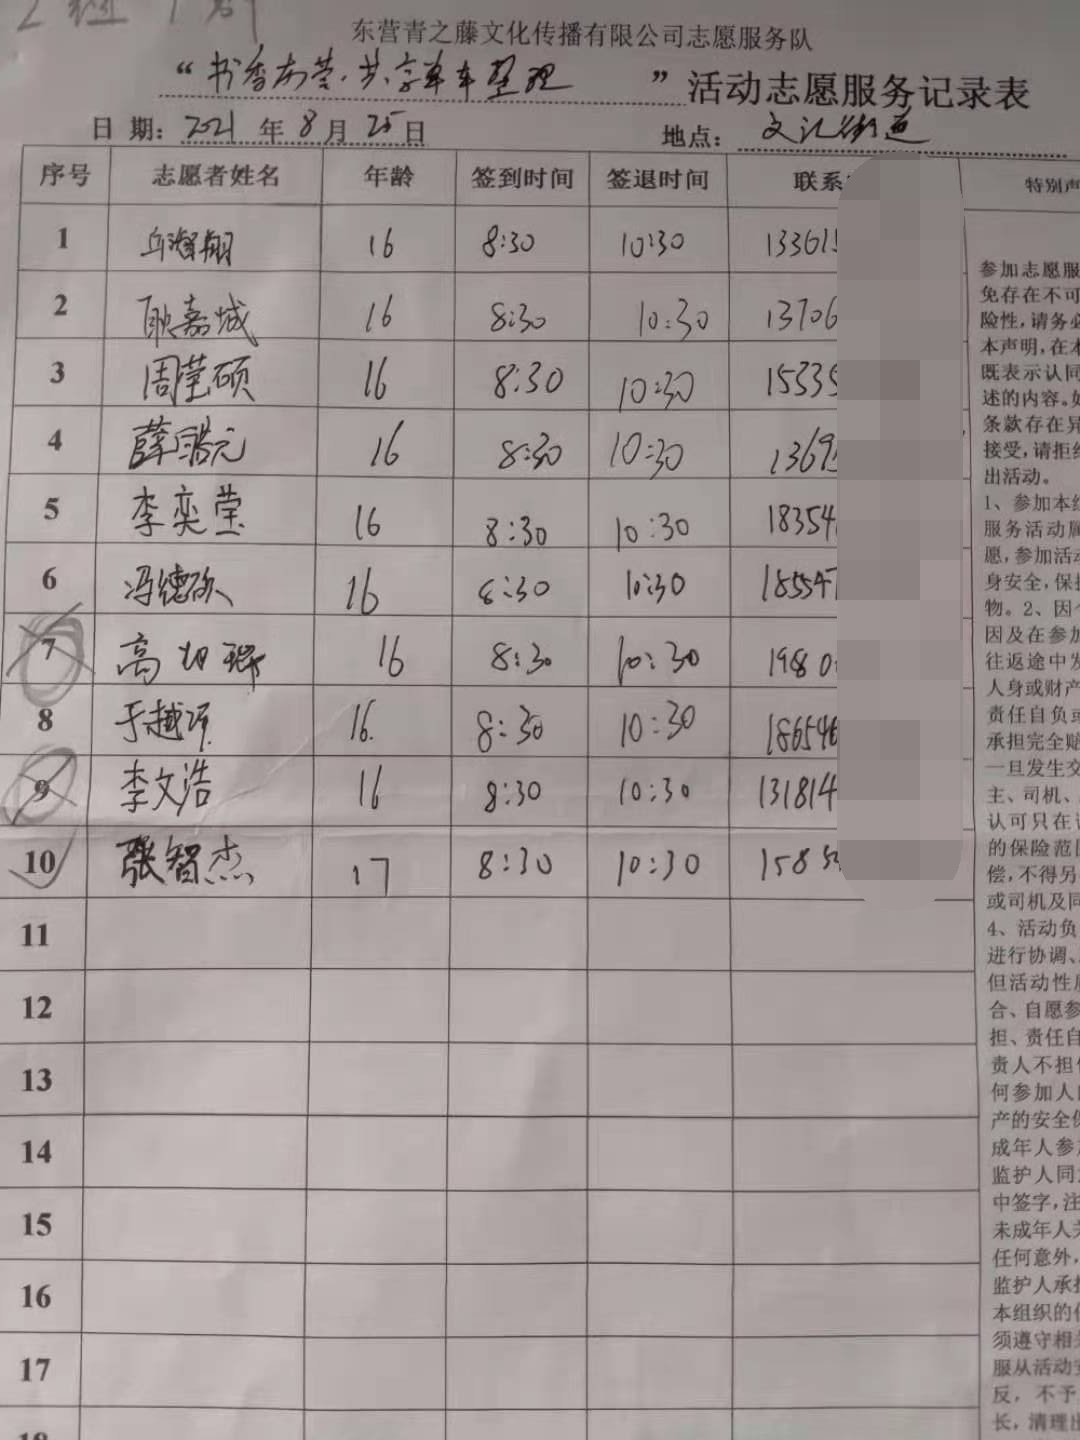 东营青之藤文化传播有限公司志愿服务队
“书香东营,共享单车整理”活动志愿服务记录表
日 期: 2021 年 8 月 25 日 地点: 文汇街道
序号 志愿者姓名 年龄 签到时间 签退时间 联系 特别声
1 16 8:30 10:30 133615
2 耿嘉城 16 8:30 10:30 13706
3 周莹硕 16 8:30 10:30 15335
4 薛皓元 16 8:30 10:30 13695
5 李奕莹 16 8:30 10:30 18354
6 冯德 16 8:30 10:30 185547
7 高 16 8:30 10:30 1980
8 于越 16. 8:30 10:30 186546
9 李文浩 16 8:30 10:30 131814
10 张智杰 17 8:30 10:30 1585
11
12
13
14
15
16
17
参加志愿服
免存在不可
险性,请务必
本声明,在本
既表示认同
述的内容。如
条款存在异
接受,请拒绝
出活动。
1、参加本组
服务活动属
愿,参加活动
身安全,保护
物。2、因个
因及在参加
往返途中发
人身或财产
责任自负或
承担完全赔
一旦发生交
主、司机、
认可只在
的保险范围
偿,不得另
或司机及同
4、活动负
进行协调、
但活动性质
合、自愿参
担、责任自
责人不担任
何参加人的
产的安全保
成年人参加
监护人同意
中签字,注
未成年人关
任何意外,
监护人承担
本组织的任
须遵守相关
服从活动安
反,不予
长,清理出